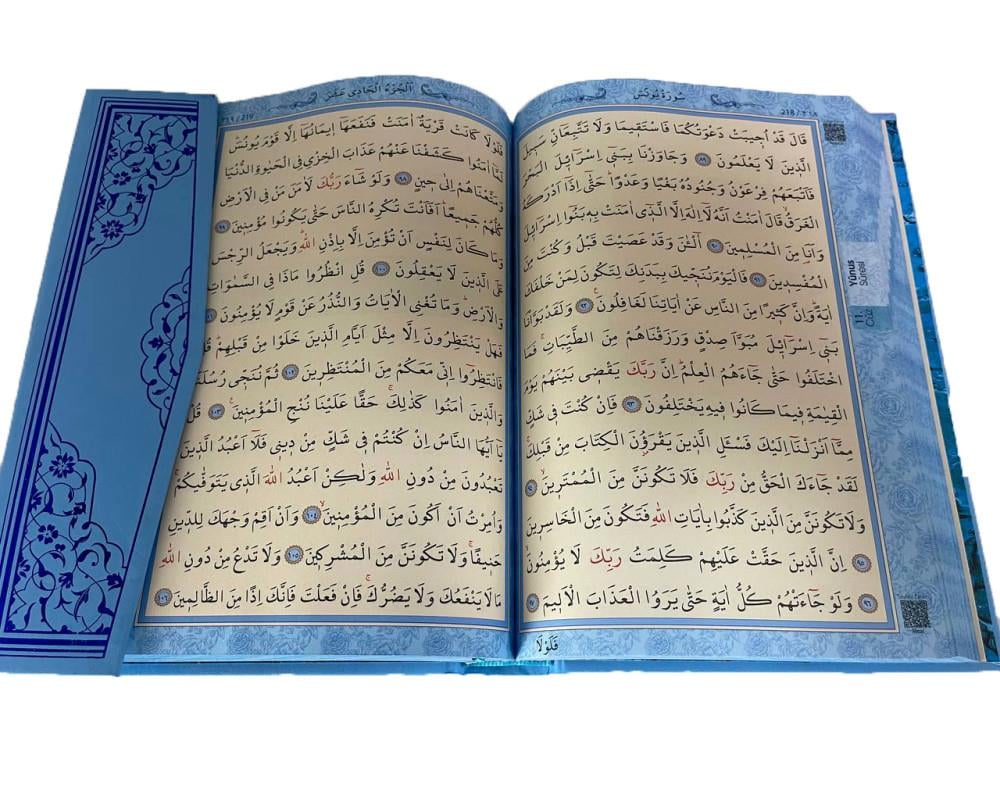 سُورَةُ يُونُسَ
٢١٨ / 218
قَالَ قَدْ اُج۪يبَتْ دَعْوَتُكُمَا فَاسْتَق۪يمَا وَلَا تَتَّبِعَٓانِّ سَب۪يلَ
الَّذ۪ينَ لَا يَعْلَمُونَ ﴿٨٩﴾ وَجَاوَزْنَا بِبَن۪ٓي اِسْرَٓائ۪لَ الْبَحْرَ
فَاَتْبَعَهُمْ فِرْعَوْنُ وَجُنُودُهُ بَغْيًا وَعَدْوًاۜ حَتّٰٓى اِذَٓا اَدْرَكَهُ
الْغَرَقُ قَالَ اٰمَنْتُ اَنَّهُ لَٓا اِلٰهَ اِلَّا الَّذ۪ٓي اٰمَنَتْ بِه۪ بَنُٓوا اِسْرَٓائ۪لَ
وَاَنَا۬ مِنَ الْمُسْلِم۪ينَ ﴿٩٠﴾ آٰلْـٰٔنَ وَقَدْ عَصَيْتَ قَبْلُ وَكُنْتَ مِنَ
الْمُفْسِد۪ينَ ﴿٩١﴾ فَالْيَوْمَ نُنَجّ۪يكَ بِبَدَنِكَ لِتَكُونَ لِمَنْ خَلْفَكَ
اٰيَةًۜ وَاِنَّ كَث۪يرًا مِنَ النَّاسِ عَنْ اٰيَاتِنَا لَغَافِلُونَ۟ ﴿٩٢﴾ وَلَقَدْ بَوَّأْنَا
بَن۪ٓي اِسْرَٓائ۪لَ مُبَوَّاَ صِدْقٍ وَرَزَقْنَاهُمْ مِنَ الطَّيِّبَاتِۚ فَمَا
اخْتَلَفُوا حَتّٰى جَٓاءَهُمُ الْعِلْمُۜ اِنَّ رَبَّكَ يَقْض۪ي بَيْنَهُمْ يَوْمَ
الْقِيٰمَةِ ف۪يمَا كَانُوا ف۪يهِ يَخْتَلِفُونَ ﴿٩٣﴾ فَاِنْ كُنْتَ ف۪ي شَكٍّ
مِمَّٓا اَنْزَلْنَٓا اِلَيْكَ فَسْـَٔلِ الَّذ۪ينَ يَقْرَؤُ۫نَ الْكِتَابَ مِنْ قَبْلِكَۚ
لَقَدْ جَٓاءَكَ الْحَقُّ مِنْ رَبِّكَ فَلَا تَكُونَنَّ مِنَ الْمُمْتَر۪ينَۙ ﴿٩٤﴾
وَلَا تَكُونَنَّ مِنَ الَّذ۪ينَ كَذَّبُوا بِاٰيَاتِ اللّٰهِ فَتَكُونَ مِنَ الْخَاسِر۪ينَ
﴿٩٥﴾ اِنَّ الَّذ۪ينَ حَقَّتْ عَلَيْهِمْ كَلِمَتُ رَبِّكَ لَا يُؤْمِنُونَۙ
﴿٩٦﴾ وَلَوْ جَٓاءَتْهُمْ كُلُّ اٰيَةٍ حَتّٰى يَرَوُا الْعَذَابَ الْاَل۪يمَ ﴿٩٧﴾
فَلَوْلَا
Yûnus
Sûresi
11.
Cüz
اَلْجُزْءُ الْحَاد۪ي عَشَرَ
٢١٩ / 219
فَلَوْلَا كَانَتْ قَرْيَةٌ اٰمَنَتْ فَنَفَعَهَٓا ا۪يمَانُهَٓا اِلَّا قَوْمَ يُونُسَۜ
لَمَّٓا اٰمَنُوا كَشَفْنَا عَنْهُمْ عَذَابَ الْخِزْيِ فِي الْحَيٰوةِ الدُّنْيَا
وَمَتَّعْنَاهُمْ اِلٰى ح۪ينٍ ﴿٩٨﴾ وَلَوْ شَٓاءَ رَبُّكَ لَاٰمَنَ مَنْ فِي الْاَرْضِ
كُلُّهُمْ جَم۪يعًاۜ اَفَاَنْتَ تُكْرِهُ النَّاسَ حَتّٰى يَكُونُوا مُؤْمِن۪ينَ ﴿٩٩﴾
وَمَا كَانَ لِنَفْسٍ اَنْ تُؤْمِنَ اِلَّا بِاِذْنِ اللّٰهِۜ وَيَجْعَلُ الرِّجْسَ
عَلَى الَّذ۪ينَ لَا يَعْقِلُونَ ﴿١٠٠﴾ قُلِ انْظُرُوا مَاذَا فِي السَّمٰوَاتِ
وَالْاَرْضِۜ وَمَا تُغْنِي الْاٰيَاتُ وَالنُّذُرُ عَنْ قَوْمٍ لَا يُؤْمِنُونَ ﴿١٠١﴾
فَهَلْ يَنْتَظِرُونَ اِلَّا مِثْلَ اَيَّامِ الَّذ۪ينَ خَلَوْا مِنْ قَبْلِهِمْۜ قُلْ
فَانْتَظِرُٓوا اِنّ۪ي مَعَكُمْ مِنَ الْمُنْتَظِر۪ينَ ﴿١٠٢﴾ ثُمَّ نُنَجّ۪ي رُسُلَنَا
وَالَّذ۪ينَ اٰمَنُوا كَذٰلِكَۚ حَقًّا عَلَيْنَا نُنْجِ الْمُؤْمِن۪ينَ۟ ﴿١٠٣﴾ قُلْ
يَٓا اَيُّهَا النَّاسُ اِنْ كُنْتُمْ ف۪ي شَكٍّ مِنْ د۪ين۪ي فَلَٓا اَعْبُدُ الَّذ۪ينَ
تَعْبُدُونَ مِنْ دُونِ اللّٰهِ وَلٰكِنْ اَعْبُدُ اللّٰهَ الَّذ۪ي يَتَوَفّٰيكُمْۚ
وَاُمِرْتُ اَنْ اَكُونَ مِنَ الْمُؤْمِن۪ينَۙ ﴿١٠٤﴾ وَاَنْ اَقِمْ وَجْهَكَ لِلدّ۪ينِ
حَن۪يفًاۚ وَلَا تَكُونَنَّ مِنَ الْمُشْرِك۪ينَ ﴿١٠٥﴾ وَلَا تَدْعُ مِنْ دُونِ اللّٰهِ
مَا لَا يَنْفَعُكَ وَلَا يَضُرُّكَۚ فَاِنْ فَعَلْتَ فَاِنَّكَ اِذًا مِنَ الظَّالِم۪ينَ ﴿١٠٦﴾